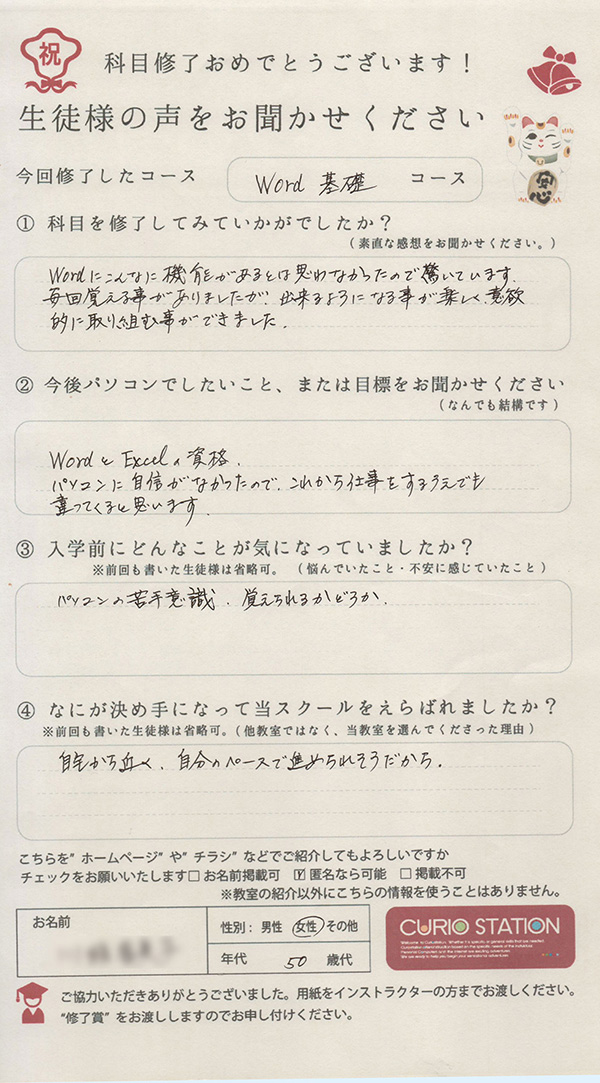 祝
科目修了おめでとうございます！
生徒様の声をお聞かせください
安心
今回修了したコース Word 基礎 コース
① 科目を修了してみていかがでしたか？
（素直な感想をお聞かせください。）
Wordにこんなに機能があるとは思わなかったので驚いています。
毎回覚える事がありましたが、出来るようになる事が楽しく、意欲
的に取り組む事ができました。
② 今後パソコンでしたいこと、または目標をお聞かせください
（なんでも結構です）
WordとExcelの資格。
パソコンに自信がなかったので、これから仕事をするうえでも
違ってくると思います。
③ 入学前にどんなことが気になっていましたか？
※前回も書いた生徒様は省略可。（悩んでいたこと・不安に感じていたこと）
パソコンの苦手意識、覚えられるかどうか。
④ なにが決め手になって当スクールをえらばれましたか？
※前回も書いた生徒様は省略可。（他教室ではなく、当教室を選んでくださった理由）
自宅から近く、自分のペースで進められそうだから。
こちらを”ホームページ”や”チラシ”などでご紹介してもよろしいですか
チェックをお願いいたします□ お名前掲載可 ☑ 匿名なら可能 □ 掲載不可
※教室の紹介以外にこちらの情報を使うことはありません。
お名前
性別： 男性 女性 その他
年代 50 歳代
CURIO STATION
ご協力いただきありがとうございました。用紙をインストラクターの方までお渡しください。
“修了賞”をお渡ししますのでお申し付けください。